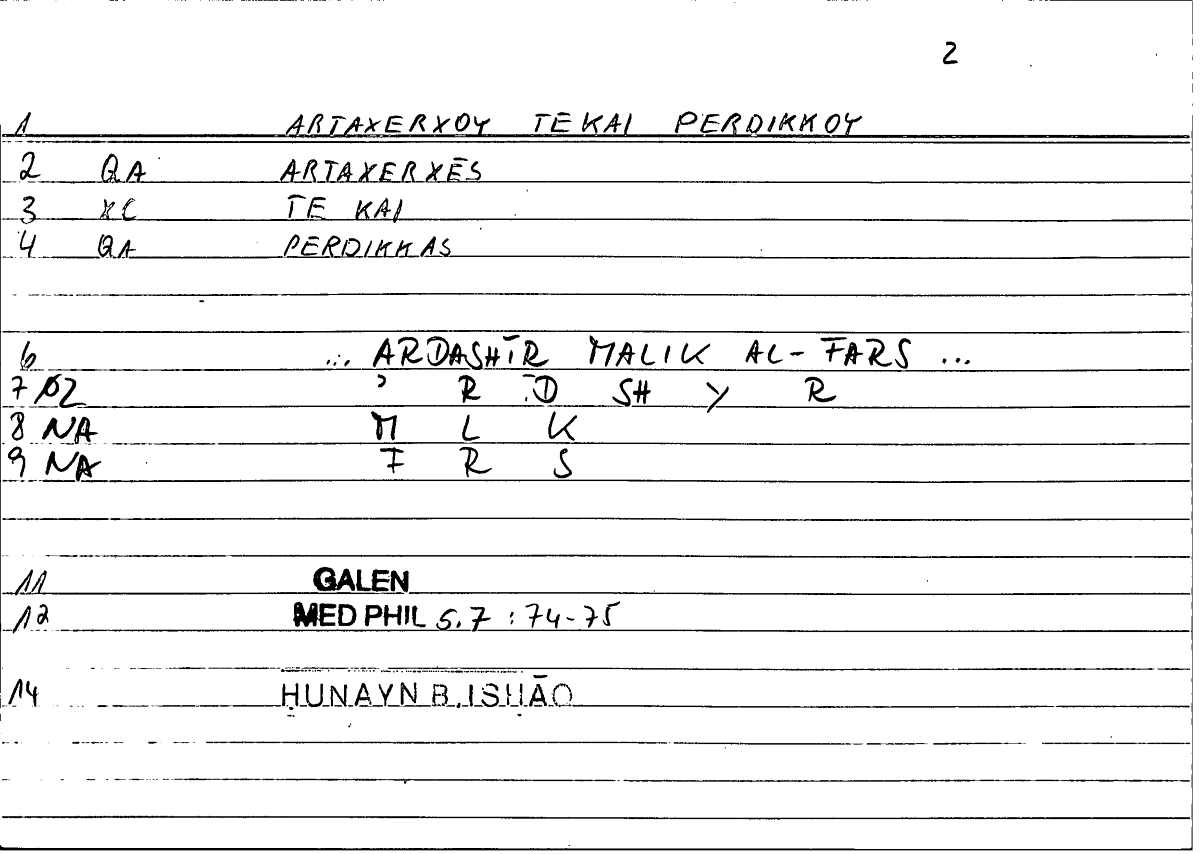 2
1 ARTAXERXOY TE KAI PERDIKKOY
2 QA ARTAXERXĒS
3 XC TE KAI
4 QA PERDIKKAS
6 ... ARDASHĪR MALIK AL-FARS ...
7 ØZ ʾ R D SH Y R
8 NA M L K
9 NA F R S
11 GALEN
12 MED PHIL 5.7 : 74-75
14 ḤUNAYN B. ISḤĀQ